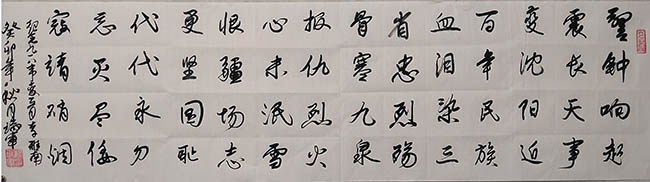 警钟响起
震长天事
变沈阳近
百年民族
血泪染三
省忠烈殇
骨寒九泉
报仇烈火
心未泯雪
恨疆场志
更坚国耻
代代永勿
忘灭尽倭
寇靖硝烟
纪念九一八事变
癸卯年秋月